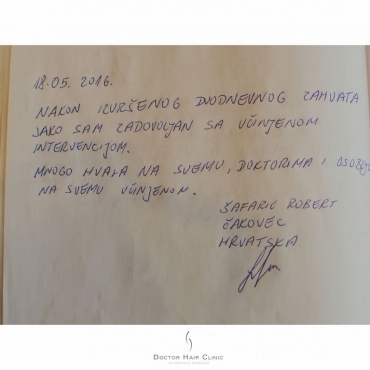 18.05.2016.
NAKON IZVRŠENOG DVODNEVNOG ZAHVATA
JAKO SAM ZADOVOLJAN SA UČINJENOM
INTERVENCIJOM.
MNOGO HVALA NA SVEMU, DOKTORIMA I OSOBLJU
NA SVEMU UČINJENOM.
ŠAFARIĆ ROBERT
ČAKOVEC
HRVATSKA
DOCTOR HAIR CLINIC